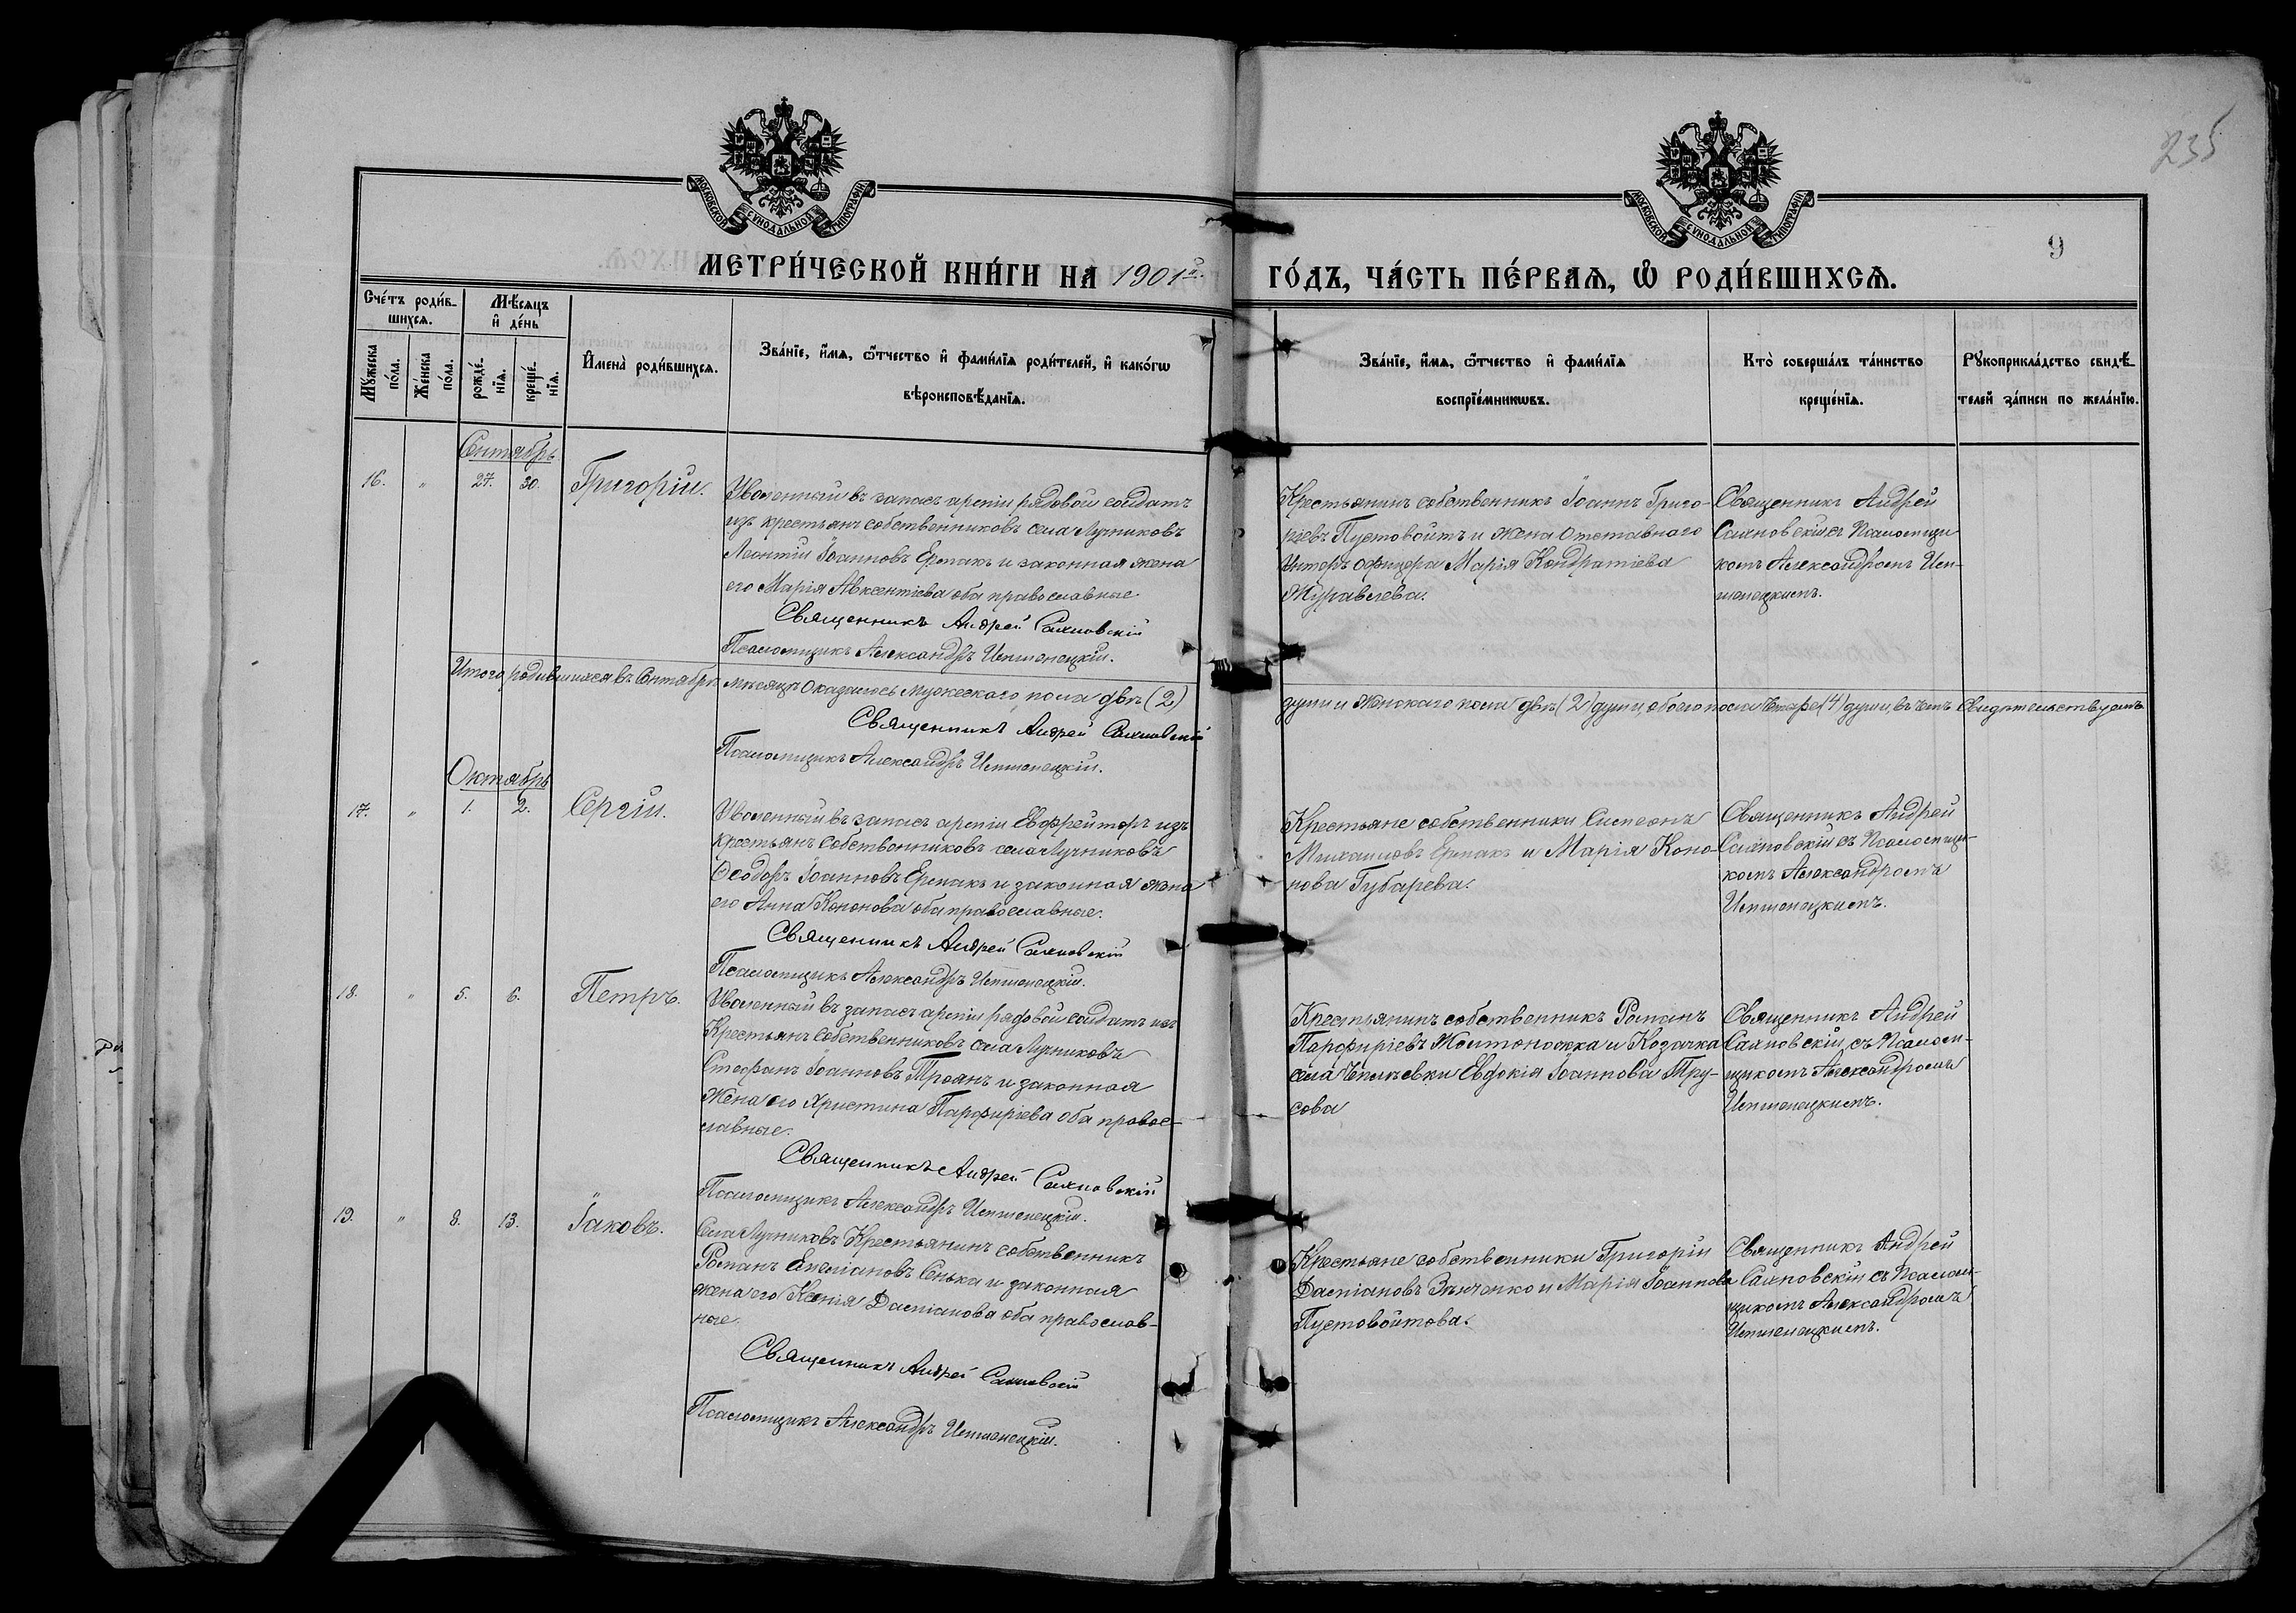 235
МОСКОВСКОЙ СѴНОДАЛЬНОЙ ТИПОГРАФІИ
МОСКОВСКОЙ СѴНОДАЛЬНОЙ ТИПОГРАФІИ
9
МЕТРИ́ЧЕСКОЙ КНИ́ГИ НА 1901й
ГО́ДЪ, ЧА́СТЬ ПЕ́РВАѦ, Ѽ РОДИ́ВШИХСѦ.
Сче́тъ роди́в-
шихсѧ.
Мѣ́сѧцъ
и҆ де́нь
Мꙋ́жеска
по́ла.
Же́нска
по́ла.
рожде́-
нїѧ.
креще́-
нїѧ.
И҆мена̀ роди́вшихсѧ.
Зва́нїе, и҆́мѧ, ѻ҆́тчество и҆ фами́лїѧ роди́телей, и҆ како́гѡ
вѣроисповѣ́данїѧ.
Зва́нїе, и҆́мѧ, ѻ҆́тчество и҆ фами́лїѧ
воспрїе́мникѡвъ.
Кто̀ соверша́лъ та́инство
креще́нїѧ.
Рꙋкоприкла́дство свидѣ́-
телей за́писи по жела́нїю.
Сентябрь
16. " 27. 30. Григорій.
Уволенный въ запасъ арміи рядовой солдатъ
изъ крестьянъ собственниковъ села Лучниковъ
Леонтій Іоанновъ Ермакъ и законная жена
его Марія Авксентіева оба православные.
Священникъ Андрей Сахновскій
Псаломщикъ Александръ
Крестьянинъ собственникъ Іоаннъ Григо-
ріевъ Пустовойтъ и жена отставнаго
Унтеръ офицера Марія Кондратіева
Журавлева.
Священникъ Андрей
Сахновскій съ Псаломщи-
комъ Александромъ
Итого родившихся въ Сентябрѣ мѣсяцѣ оказалось мужескаго пола двѣ (2)
души и женскаго пола двѣ (2) души, обоего пола четыре (4) души, въ чемъ свидѣтельствуемъ
Священникъ Андрей Сахновскій
Псаломщикъ Александръ
Октябрь
17. " 1. 2. Сергій.
Уволенный въ запасъ арміи Ефрейторъ изъ
крестьянъ собственниковъ села Лучниковъ
Ѳеодоръ Іоанновъ Ермакъ и законная жена
его Анна Кононова оба православные.
Священникъ Андрей Сахновскій
Псаломщикъ Александръ
Крестьяне собственники Симеонъ
Михаиловъ Ермакъ и Марія Коно-
нова Губарева.
Священникъ Андрей
Сахновскій съ Псаломщи-
комъ Александромъ
18. " 5. 6. Петръ.
Уволенный въ запасъ арміи рядовой солдатъ изъ
Крестьянъ собственниковъ села Лучниковъ
Стефанъ Іоанновъ Троянъ и законная
жена его Христина Парфиріева оба правос-
лавные.
Священникъ Андрей Сахновскій
Псаломщикъ Александръ
Крестьянинъ собственникъ Романъ
Парфиріевъ Желтоножка и Козачка
села Евдокія Іоаннова Тру-
сова
Священникъ Андрей
Сахновскій съ Псалом-
щикомъ Александромъ
19. " 8. 13. Іаковъ.
Села Лучниковъ Крестьянинъ собственникъ
Романъ Емеліановъ Сенька и законная
жена его Ксенія Даміанова оба православ-
ные.
Священникъ Андрей Сахновскій
Псаломщикъ Александръ
Крестьяне собственники Григорій
Даміановъ Зѣнченко и Марія Іоаннова
Пустовойтова.
Священникъ Андрей
Сахновскій съ Псалом-
щикомъ Александромъ